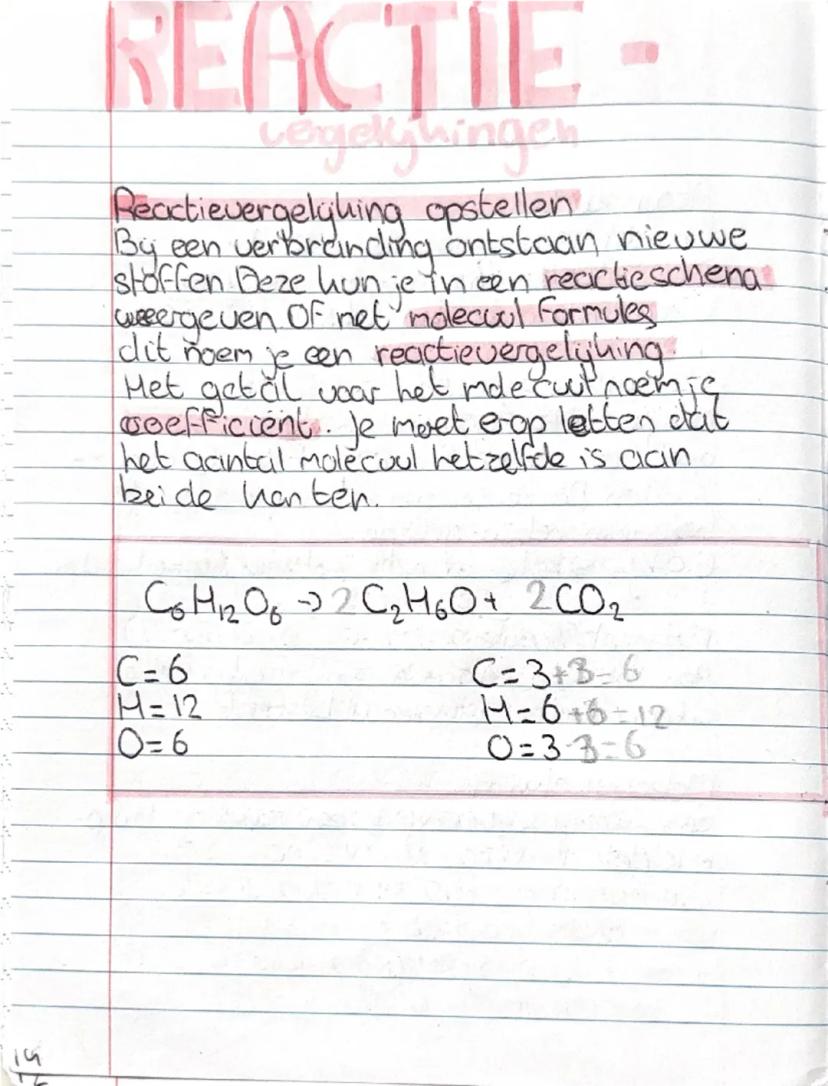 REACTIE -
vergelijkingen
Reactievergelijking opstellen
Bij een verbranding ontstaan nieuwe
stoffen Deze kun je in een reactieschema
weergeven OF met molecuul formules
dit noem je een reactievergelijking.
Het getal voor het molecuul noem je
coefficient. Je moet erop letten dat
het aantal molecuul hetzelfde is aan
beide kanten.
C₆H₁₂O₆ → 2 C₂H₆O + 2CO₂
C=6 C=3+3=6
H=12 H=6+6=12
O=6 O=3 3=6